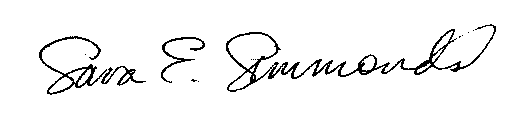 Sara E. Simmonds